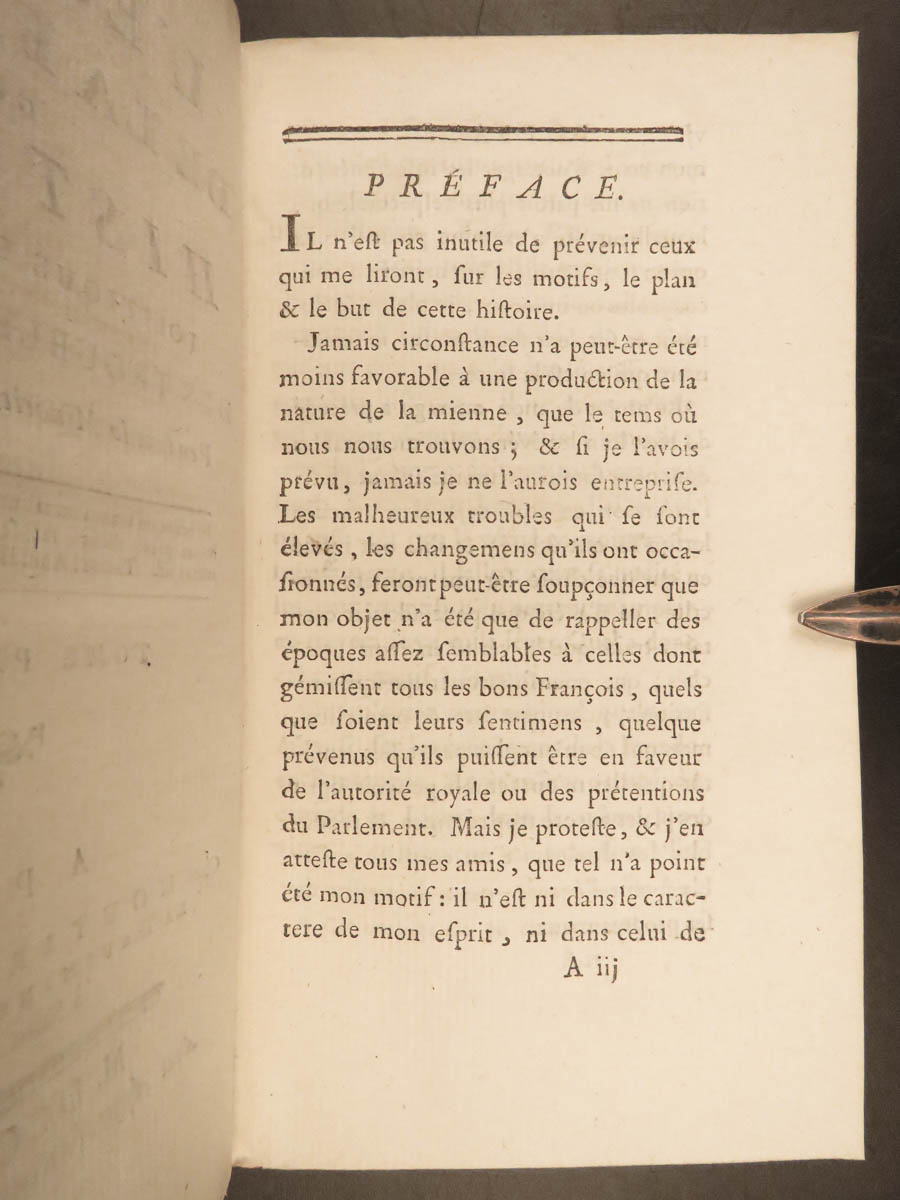 PRÉFACE.
IL n'eſt pas inutile de prévenir ceux
qui me liront, ſur les motifs, le plan
& le but de cette hiſtoire.
Jamais circonſtance n'a peut-être été
moins favorable à une production de la
nature de la mienne, que le tems où
nous nous trouvons; & ſi je l'avois
prévu, jamais je ne l'aurois entrepriſe.
Les malheureux troubles qui ſe ſont
élevés, les changemens qu'ils ont occa-
ſionnés, feront peut-être ſoupçonner que
mon objet n'a été que de rappeller des
époques aſſez ſemblables à celles dont
gémiſſent tous les bons François, quels
que ſoient leurs ſentimens, quelque
prévenus qu'ils puiſſent être en faveur
de l'autorité royale ou des prétentions
du Parlement. Mais je proteſte, & j'en
atteſte tous mes amis, que tel n'a point
été mon motif: il n'eſt ni dans le carac-
tere de mon eſprit, ni dans celui de
A iij